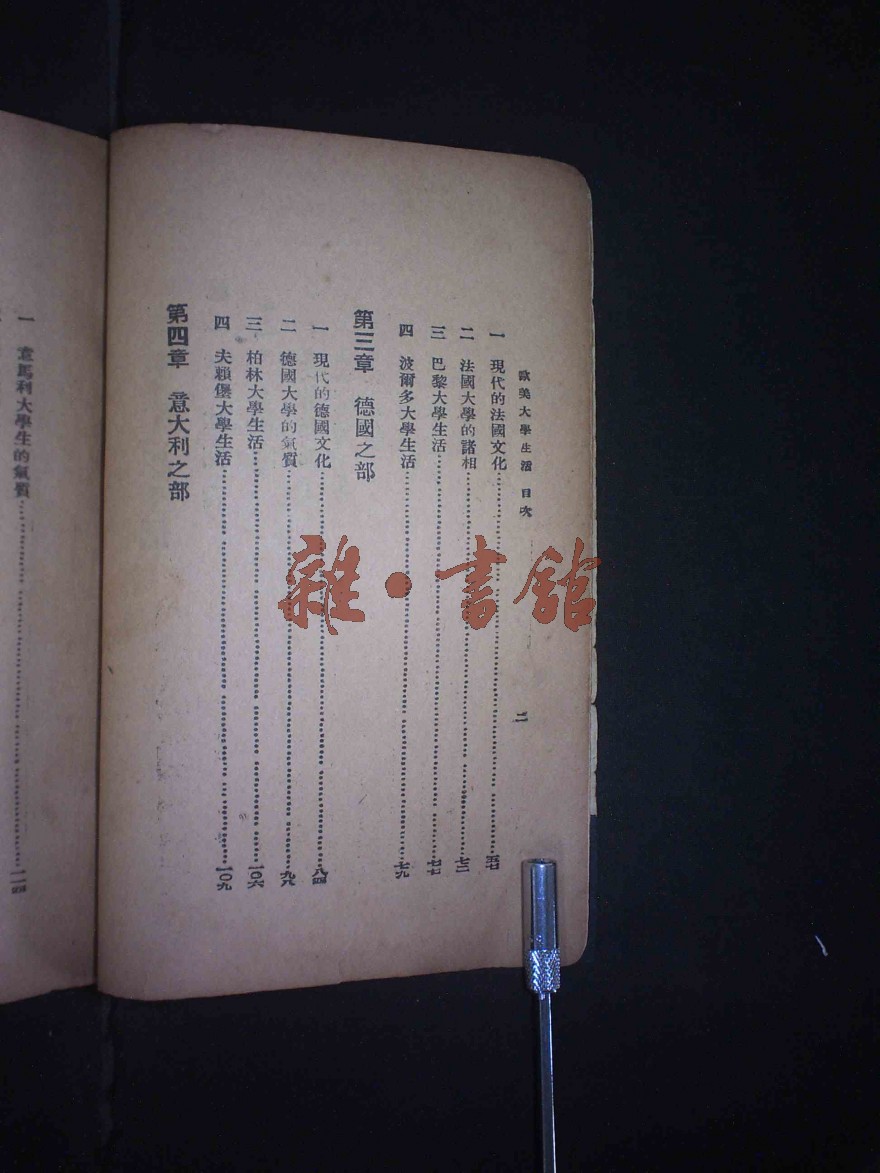 歐美大學生活 目次
二
一 現代的法國文化……五七
二 法國大學的諸相……七二
三 巴黎大學生活……七七
四 波爾多大學生活……七九
第三章 德國之部
一 現代的德國文化……八四
二 德國大學的氣質……九八
三 柏林大學生活……一〇六
四 夫賴堡大學生活……一〇九
第四章 意大利之部
一 意馬利大學生的氣質……一一四
雜·書館